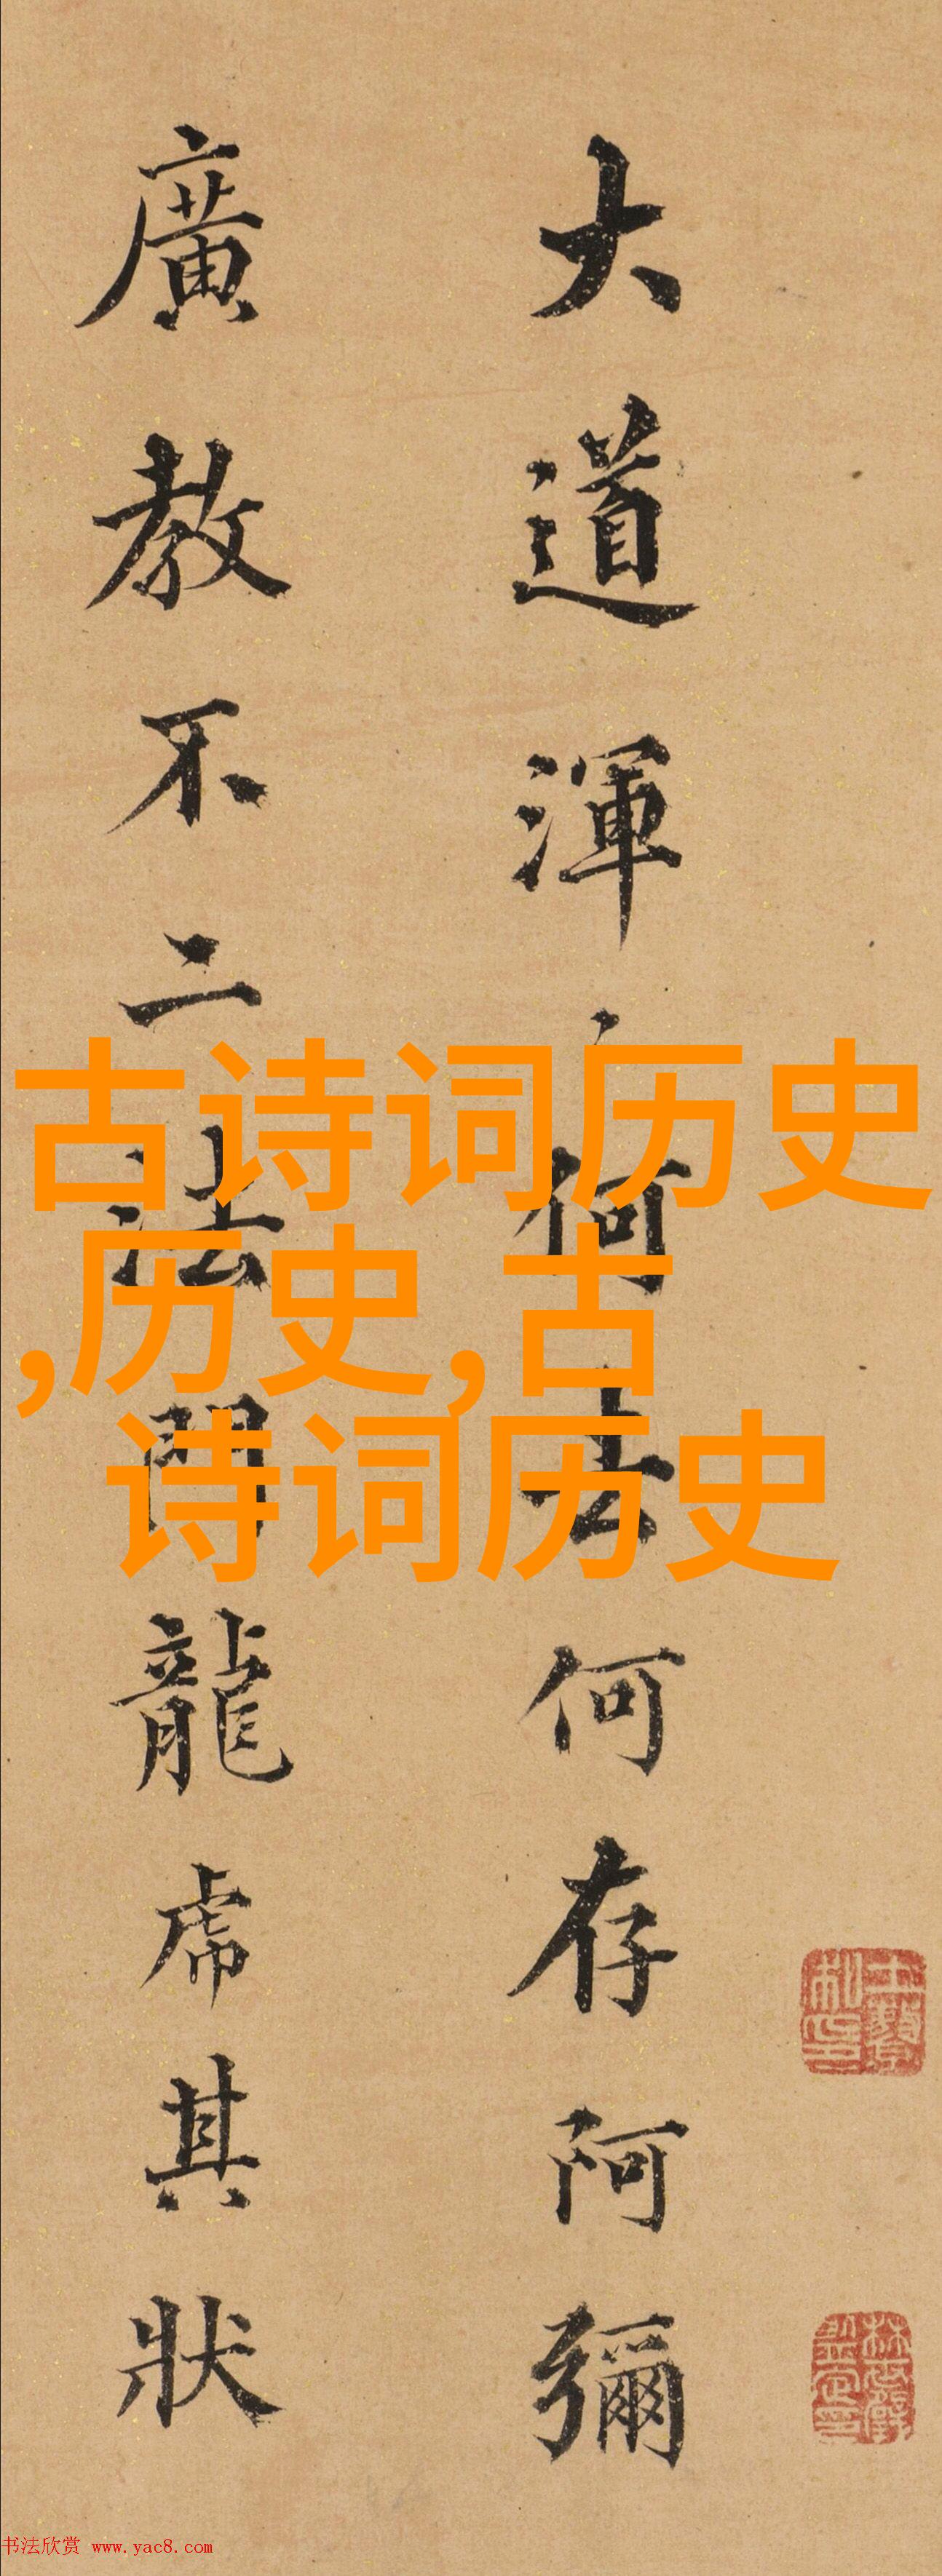 大道渾
何去何存阿彌
廣教不二法門龍虎其狀
古诗词历史
,历史,古
诗词历史
书法欣赏 www.yac8.com